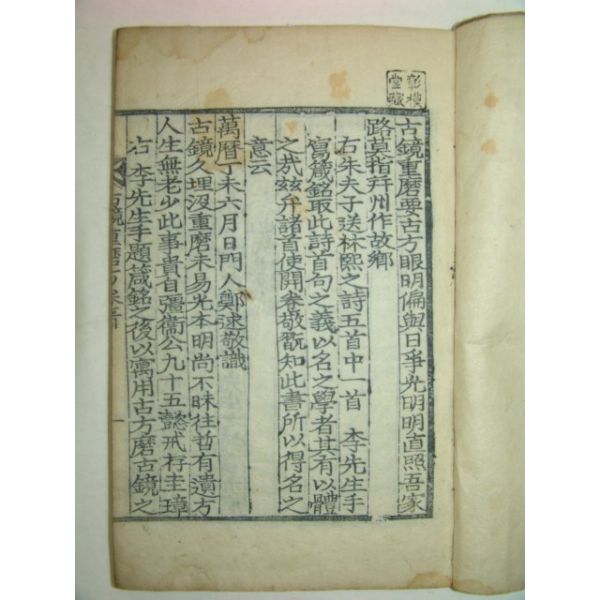 古鏡重磨要古方眼明偏與日爭光明明直照吾家
路莫指幷州作故鄉
右朱夫子送林熙之詩五首中一首 李先生手
寫箴銘取此詩首句之義以名之學者其有以體
之㢤玆弁諸首使開卷敬翫知此書所以得名之
意云
萬曆丁未六月日門人鄭逑敬識
古鏡久埋沒重磨未易光本明尚不昧往哲有遺方
人生無老少此事貴自彊衛公九十五懿戒存圭璋
右 李先生手題箴銘之後以寓用古方磨古鏡之
古鏡重磨方